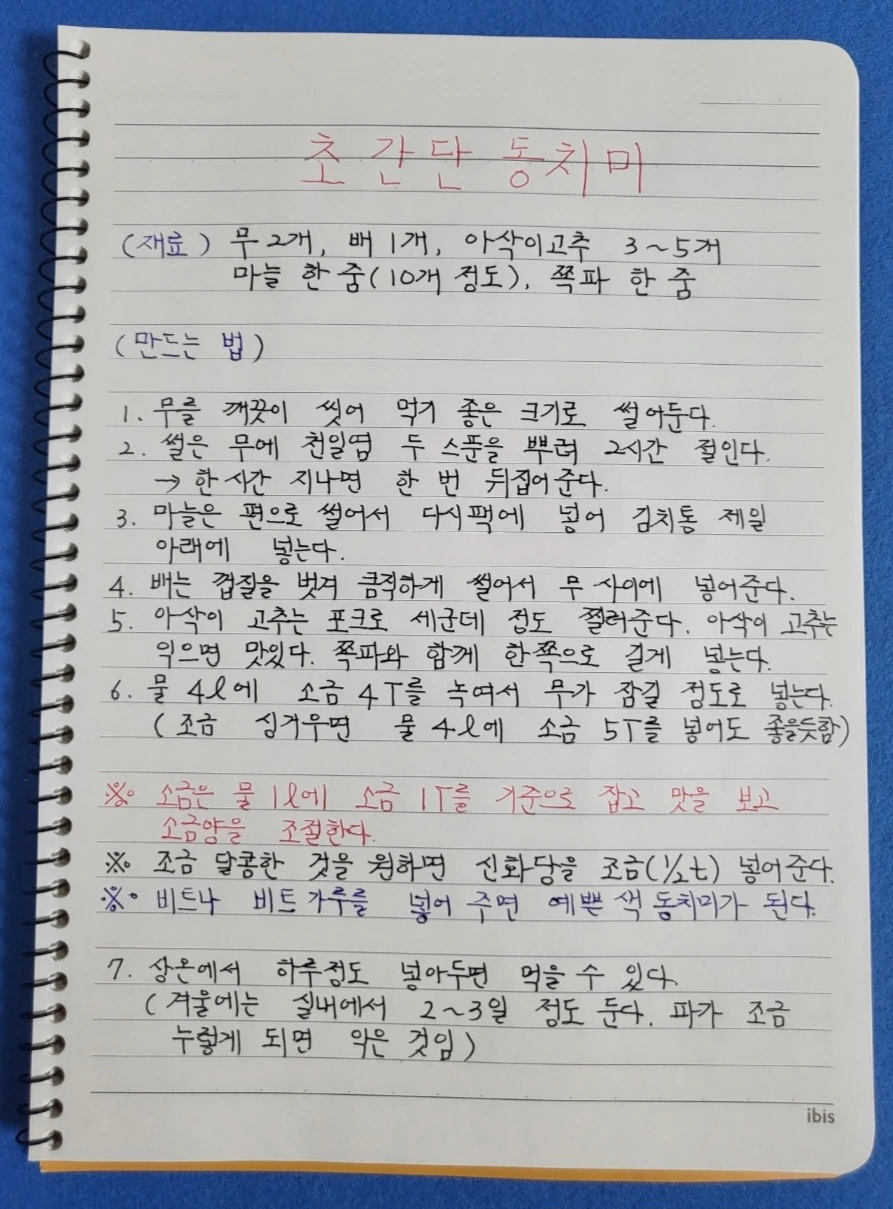 초간단 동치미
(재료) 무 2개, 배 1개, 아삭이고추 3~5개
마늘 한 줌(10개 정도), 쪽파 한 줌
(만드는 법)
1. 무를 깨끗이 씻어 먹기 좋은 크기로 썰어둔다.
2. 썰은 무에 천일염 두 스푼을 뿌려 2시간 절인다.
→ 한시간 지나면 한 번 뒤집어준다.
3. 마늘은 편으로 썰어서 다시팩에 넣어 김치통 제일
아래에 넣는다.
4. 배는 껍질을 벗겨 큼직하게 썰어서 무 사이에 넣어준다.
5. 아삭이 고추는 포크로 세군데 정도 찔러준다. 아삭이 고추는
익으면 맛있다. 쪽파와 함께 한쪽으로 길게 넣는다.
6. 물 4ℓ에 소금 4T를 녹여서 무가 잠길 정도로 넣는다.
(조금 싱거우면 물 4ℓ에 소금 5T를 넣어도 좋을듯함)
※ 소금은 물 1ℓ에 소금 1T를 기준으로 잡고 맛을 보고
소금양을 조절한다.
※ 조금 달콤한 것을 원하면 신화당을 조금(1/2t) 넣어준다.
※ 비트나 비트가루를 넣어 주면 예쁜 색 동치미가 된다.
7. 상온에서 하루정도 넣아두면 먹을 수 있다.
(겨울에는 실내에서 2~3일 정도 둔다. 파가 조금
누렇게 되면 익은 것임)
ibis